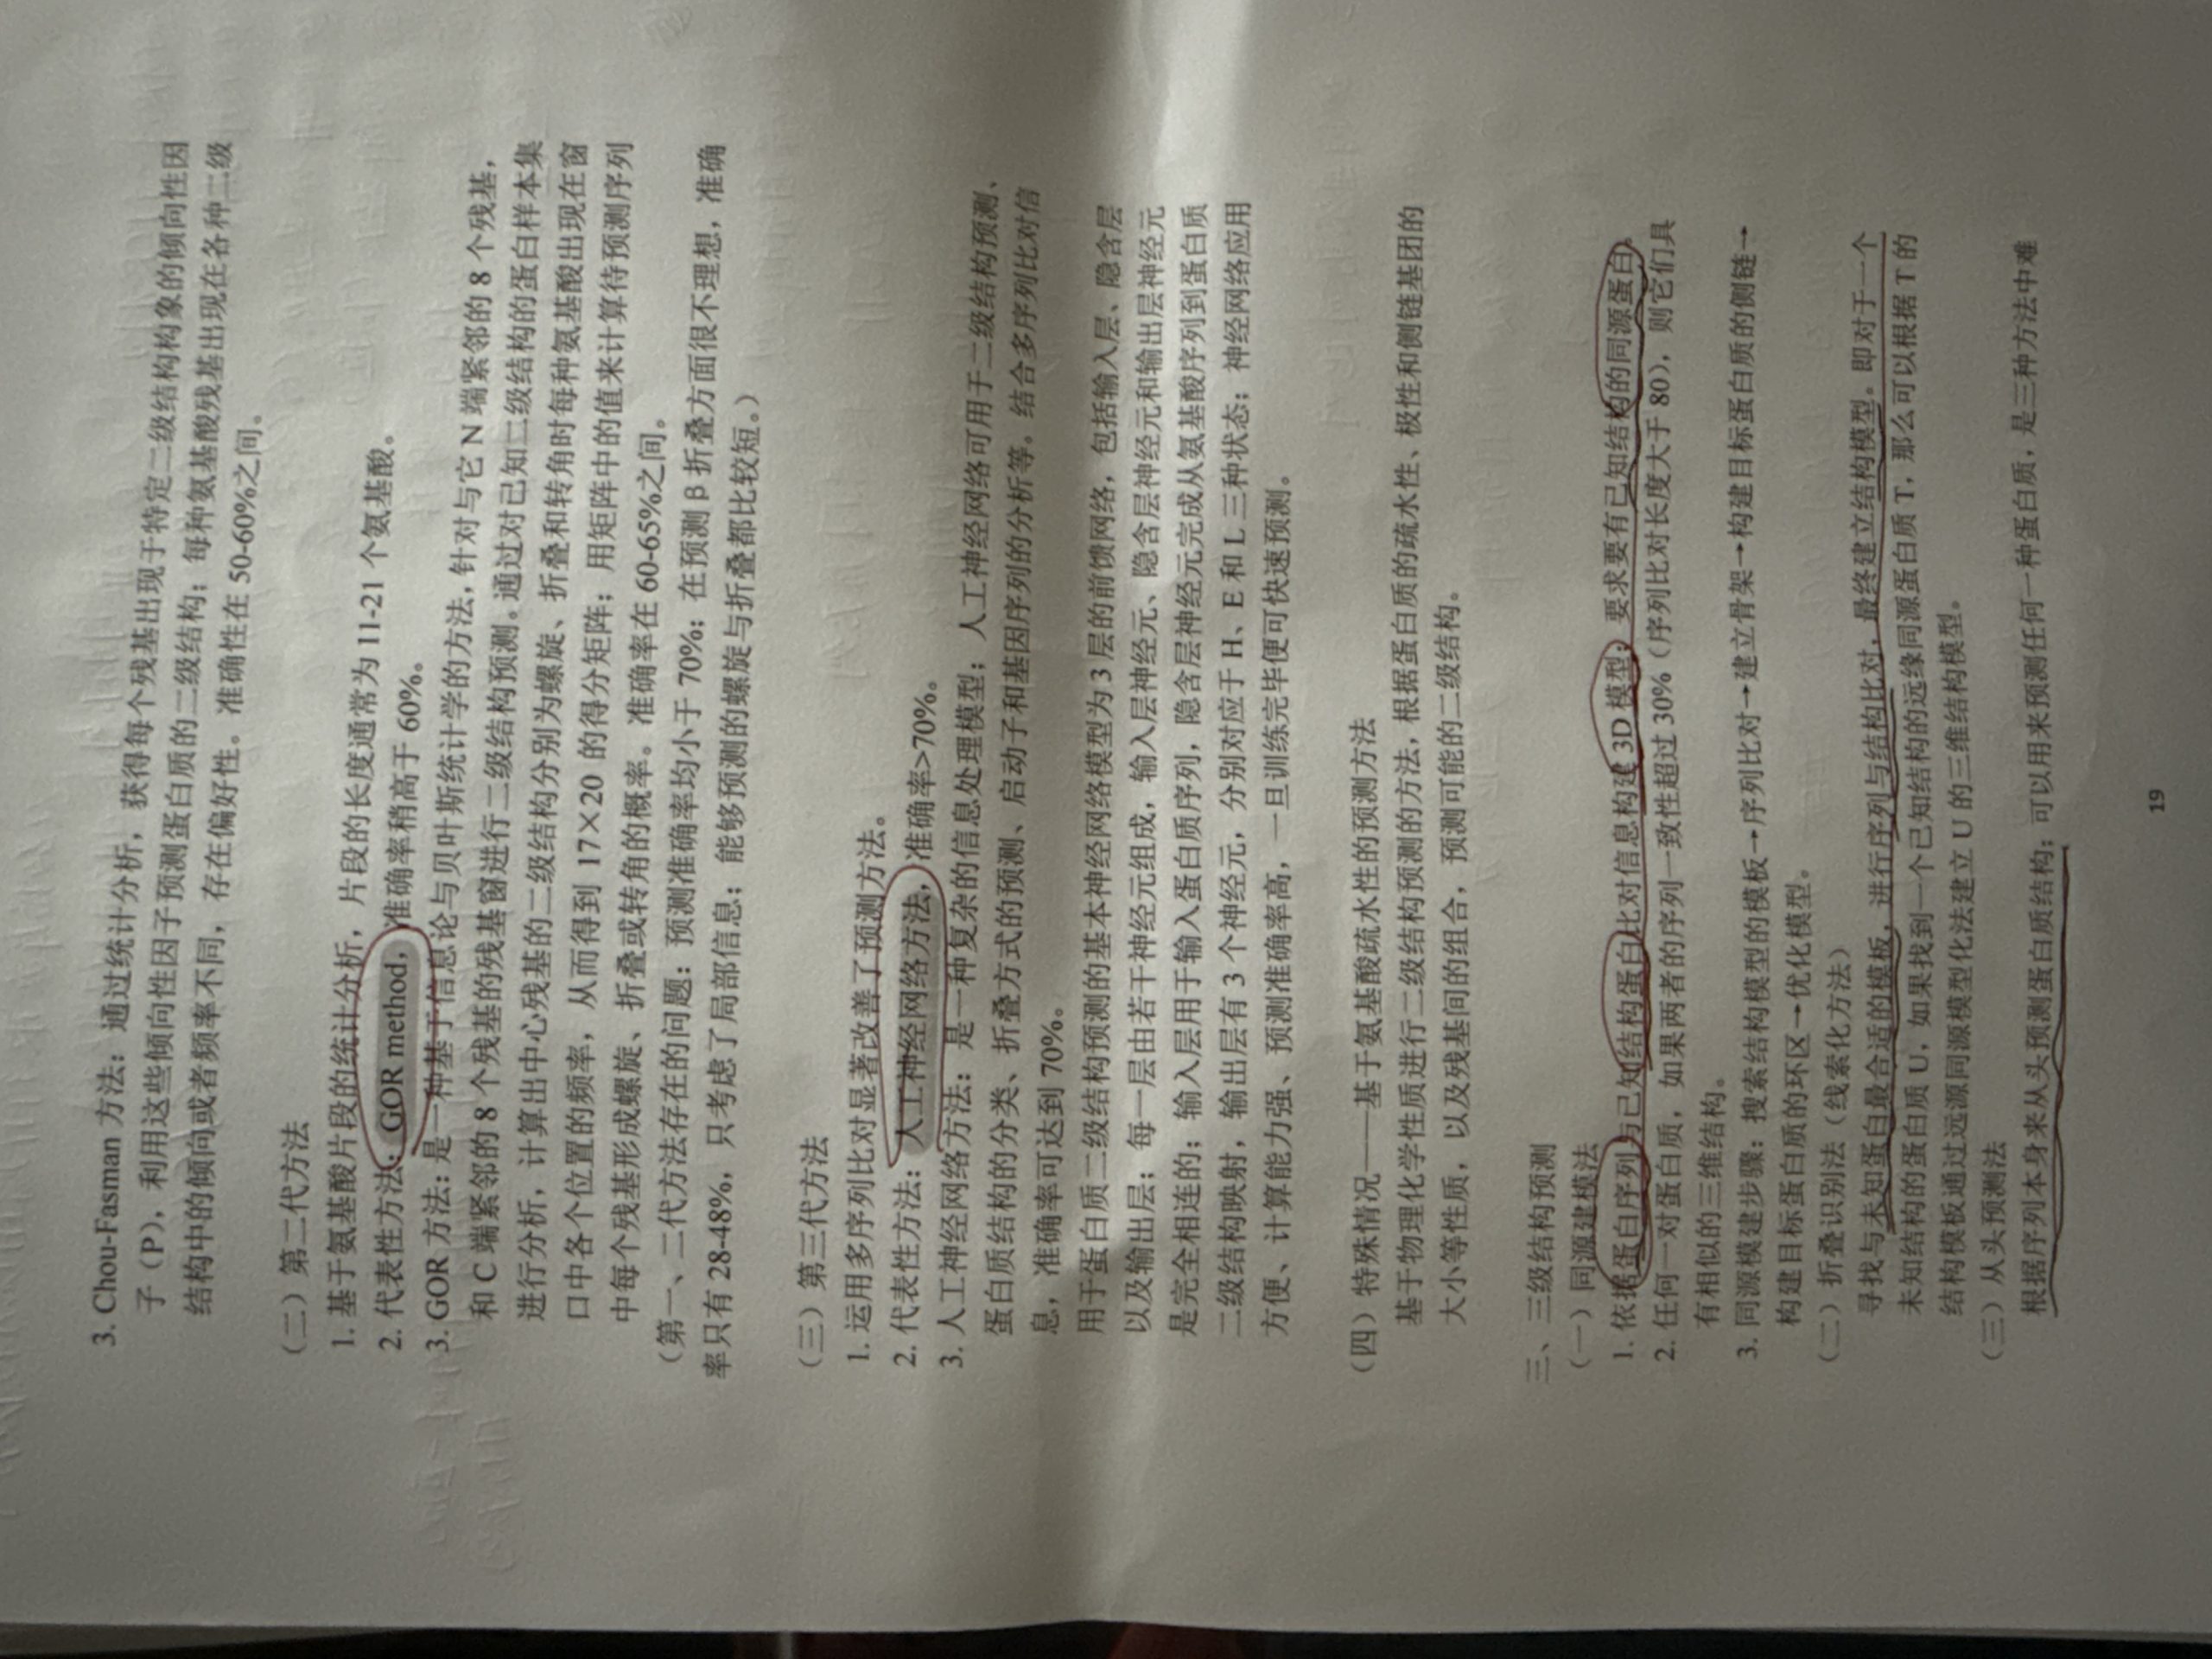 3. Chou-Fasman 方法：通过统计分析，获得每个残基出现于特定二级结构构象的倾向性因
子（P），利用这些倾向性因子预测蛋白质的二级结构；每种氨基酸残基出现在各种二级
结构中的倾向或者频率不同，存在偏好性。准确性在 50-60%之间。
（二）第二代方法
1. 基于氨基酸片段的统计分析，片段的长度通常为 11-21 个氨基酸。
2. 代表性方法：GOR method，准确率稍高于 60%。
3. GOR 方法：是一种基于信息论与贝叶斯统计学的方法，针对与它 N 端紧邻的 8 个残基，
和 C 端紧邻的 8 个残基的残基窗进行二级结构预测。通过对已知二级结构的蛋白样本集
进行分析，计算出中心残基的二级结构分别为螺旋、折叠和转角时每种氨基酸出现在窗
口中各个位置的频率，从而得到 17×20 的得分矩阵；用矩阵中的值来计算待预测序列
中每个残基形成螺旋、折叠或转角的概率。准确率在 60-65%之间。
（第一、二代方法存在的问题：预测准确率均小于 70%；在预测 β 折叠方面很不理想，准确
率只有 28-48%，只考虑了局部信息；能够预测的螺旋与折叠都比较短。）
（三）第三代方法
1. 运用多序列比对显著改善了预测方法。
2. 代表性方法：人工神经网络方法，准确率>70%。
3. 人工神经网络方法：是一种复杂的信息处理模型；人工神经网络可用于二级结构预测、
蛋白质结构的分类、折叠方式的预测、启动子和基因序列的分析等。结合多序列比对信
息，准确率可达到 70%。
用于蛋白质二级结构预测的基本神经网络模型为 3 层的前馈网络，包括输入层、隐含层
以及输出层；每一层由若干神经元组成，输入层神经元、隐含层神经元和输出层神经元
是完全相连的；输入层用于输入蛋白质序列，隐含层神经元完成从氨基酸序列到蛋白质
二级结构映射，输出层有 3 个神经元，分别对应于 H、E 和 L 三种状态；神经网络应用
方便、计算能力强、预测准确率高，一旦训练完毕便可快速预测。
（四）特殊情况——基于氨基酸疏水性的预测方法
基于物理化学性质进行二级结构预测的方法，根据蛋白质的疏水性、极性和侧链基团的
大小等性质，以及残基间的组合，预测可能的二级结构。
三、三级结构预测
（一）同源建模法
1. 依据蛋白序列与已知结构蛋白比对信息构建 3D 模型；要求要有已知结构的同源蛋白。
2. 任何一对蛋白质，如果两者的序列一致性超过 30%（序列比对长度大于 80），则它们具
有相似的三维结构。
3. 同源模建步骤：搜索结构模型的模板→序列比对→建立骨架→构建目标蛋白质的侧链→
构建目标蛋白质的环区→优化模型。
（二）折叠识别法（线索化方法）
寻找与未知蛋白最合适的模板，进行序列与结构比对，最终建立结构模型。即对于一个
未知结构的蛋白质 U，如果找到一个已知结构的远缘同源蛋白质 T，那么可以根据 T 的
结构模板通过远源同源模型化法建立 U 的三维结构模型。
（三）从头预测法
根据序列本身来从头预测蛋白质结构；可以用来预测任何一种蛋白质，是三种方法中难
19